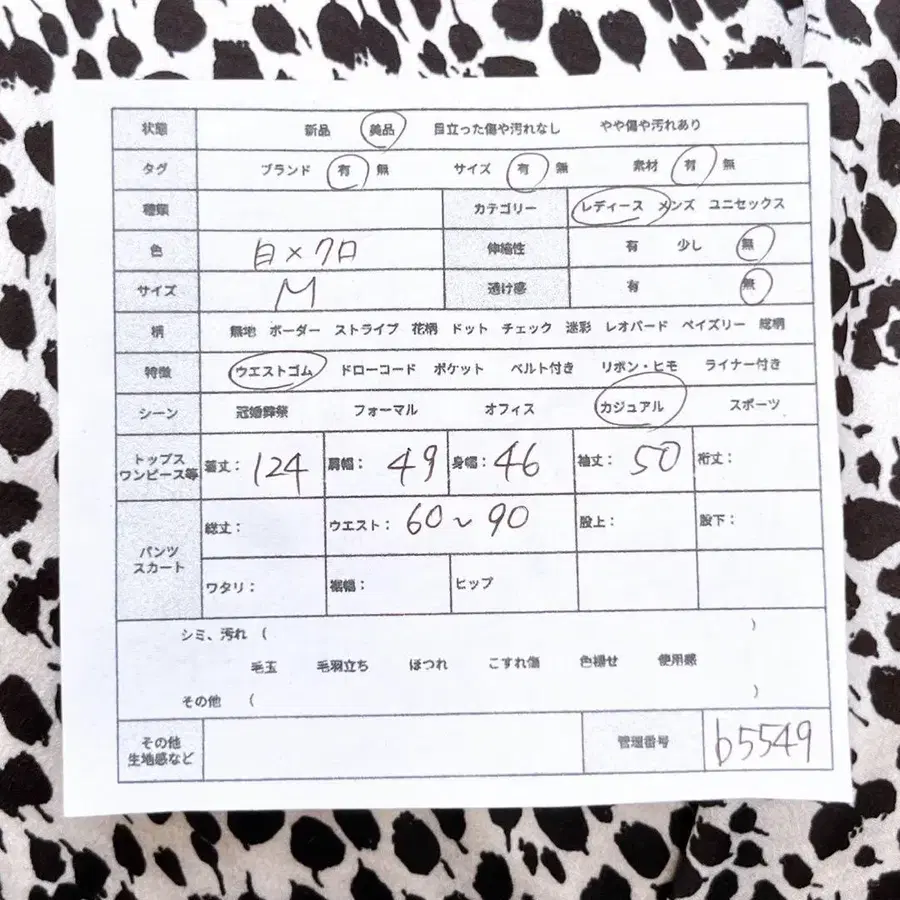 状態 新品 美品 目立った傷や汚れなし やや傷や汚れあり
タグ ブランド 有 無 サイズ 有 無 素材 有 無
種類 カテゴリー レディース メンズ ユニセックス
色 白×クロ 伸縮性 有 少し 無
サイズ M 透け感 有 無
柄 無地 ボーダー ストライプ 花柄 ドット チェック 迷彩 レオパード ペイズリー 総柄
特徴 ウエストゴム ドローコード ポケット ベルト付き リボン・ヒモ ライナー付き
シーン 冠婚葬祭 フォーマル オフィス カジュアル スポーツ
トップス
ワンピース等 着丈: 124 肩幅: 49 身幅: 46 袖丈: 50 裄丈:
パンツ
スカート 総丈: ウエスト: 60~90 股上: 股下:
ワタリ: 裾幅: ヒップ
シミ、汚れ ( )
毛玉 毛羽立ち ほつれ こすれ傷 色褪せ 使用感
その他 ( )
その他
生地感など 管理番号 b5549